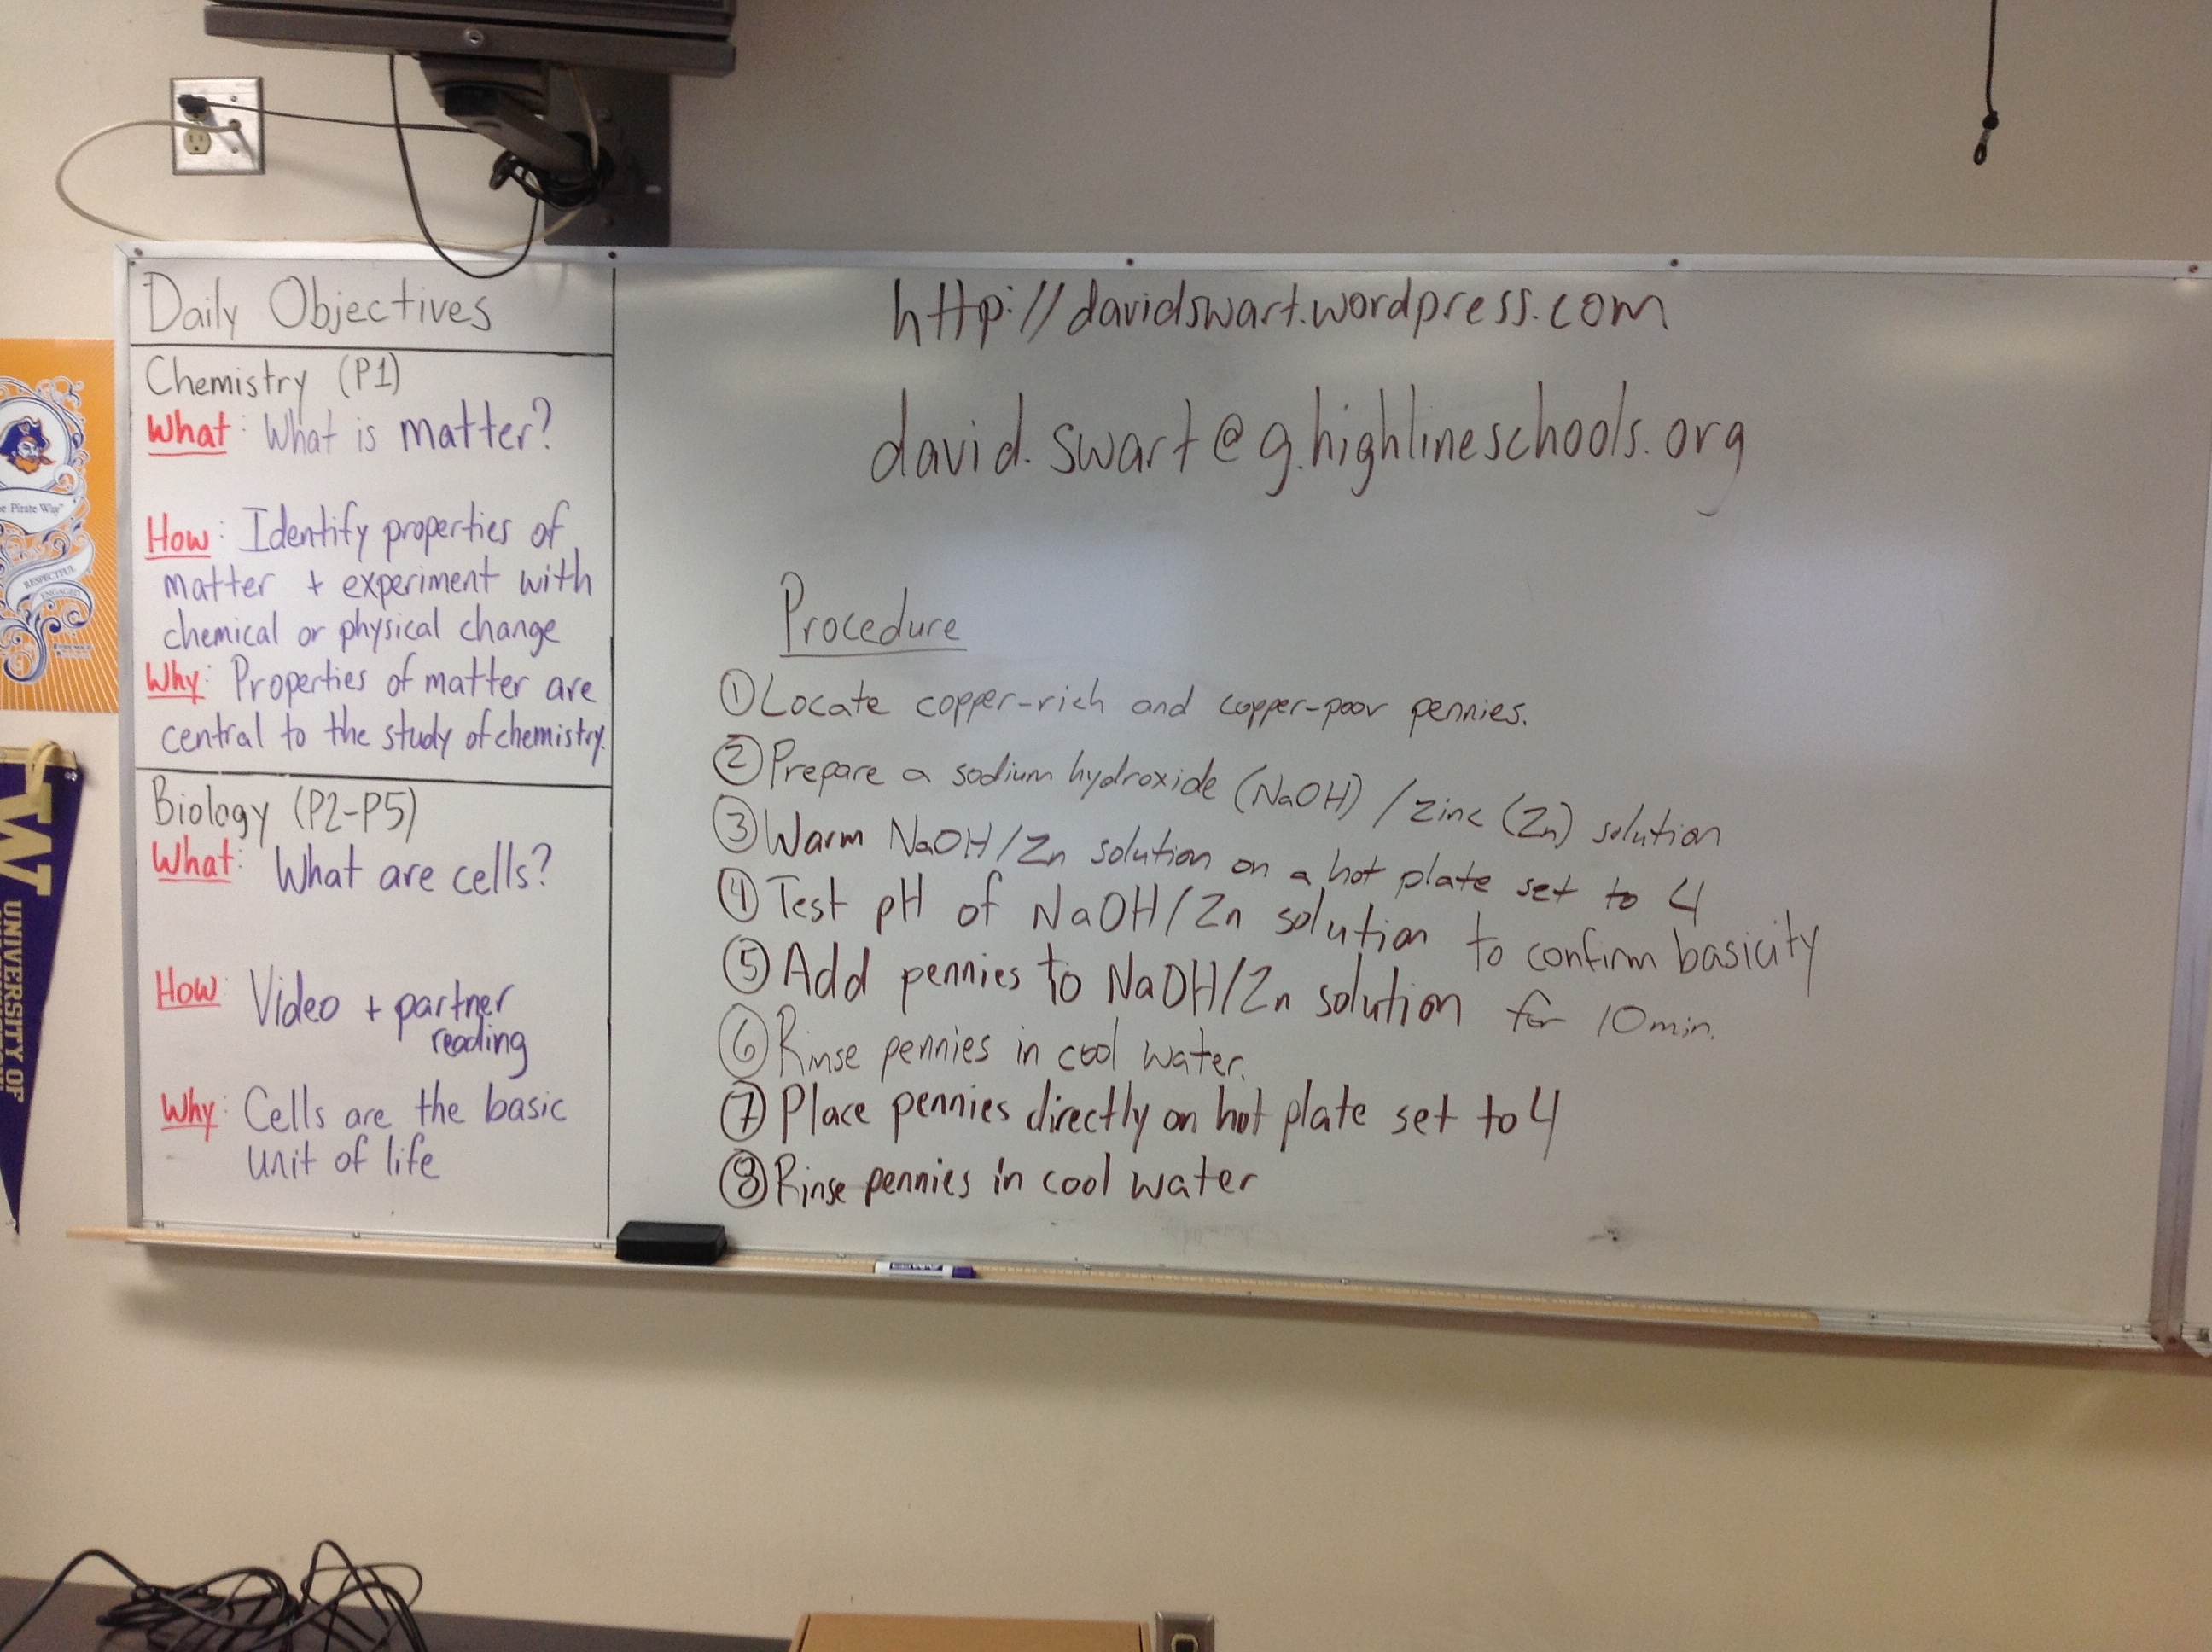 Daily Objectives
Chemistry (P1)
What: What is matter?
How: Identify properties of
matter + experiment with
chemical or physical change
Why: Properties of matter are
central to the study of chemistry.
Biology (P2-P5)
What: What are cells?
How: Video + partner
reading
Why: Cells are the basic
unit of life
http://davidswart.wordpress.com
david.swart@g.highlineschools.org
Procedure
① Locate copper-rich and copper-poor pennies.
② Prepare a sodium hydroxide (NaOH) / zinc (Zn) solution
③ Warm NaOH/Zn solution on a hot plate set to 4
④ Test pH of NaOH/Zn solution to confirm basicity
⑤ Add pennies to NaOH/Zn solution for 10 min.
⑥ Rinse pennies in cool water.
⑦ Place pennies directly on hot plate set to 4
⑧ Rinse pennies in cool water
Pirate Way"
RESPECTFUL
ENGAGED
W
UNIVERSITY OF